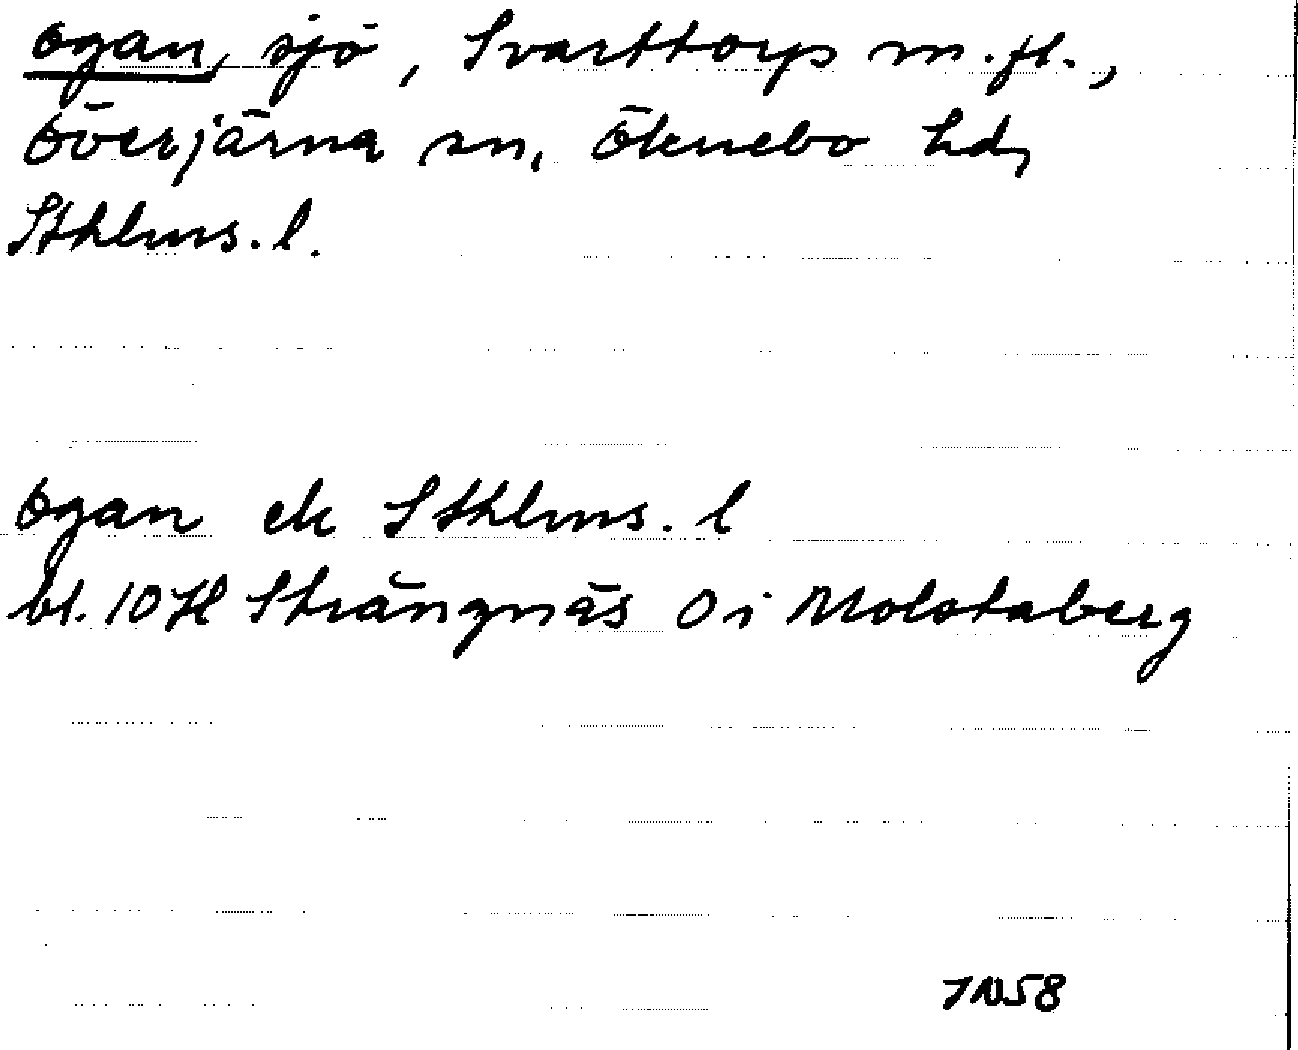 Ogan, sjö, Svarttorp m.fl.,
Överjärna sn, Öknebo hd,
Sthlms. l.
Ogan ek Sthlms. l
bl. 10 H Strängnäs O i Molstaberg
71058